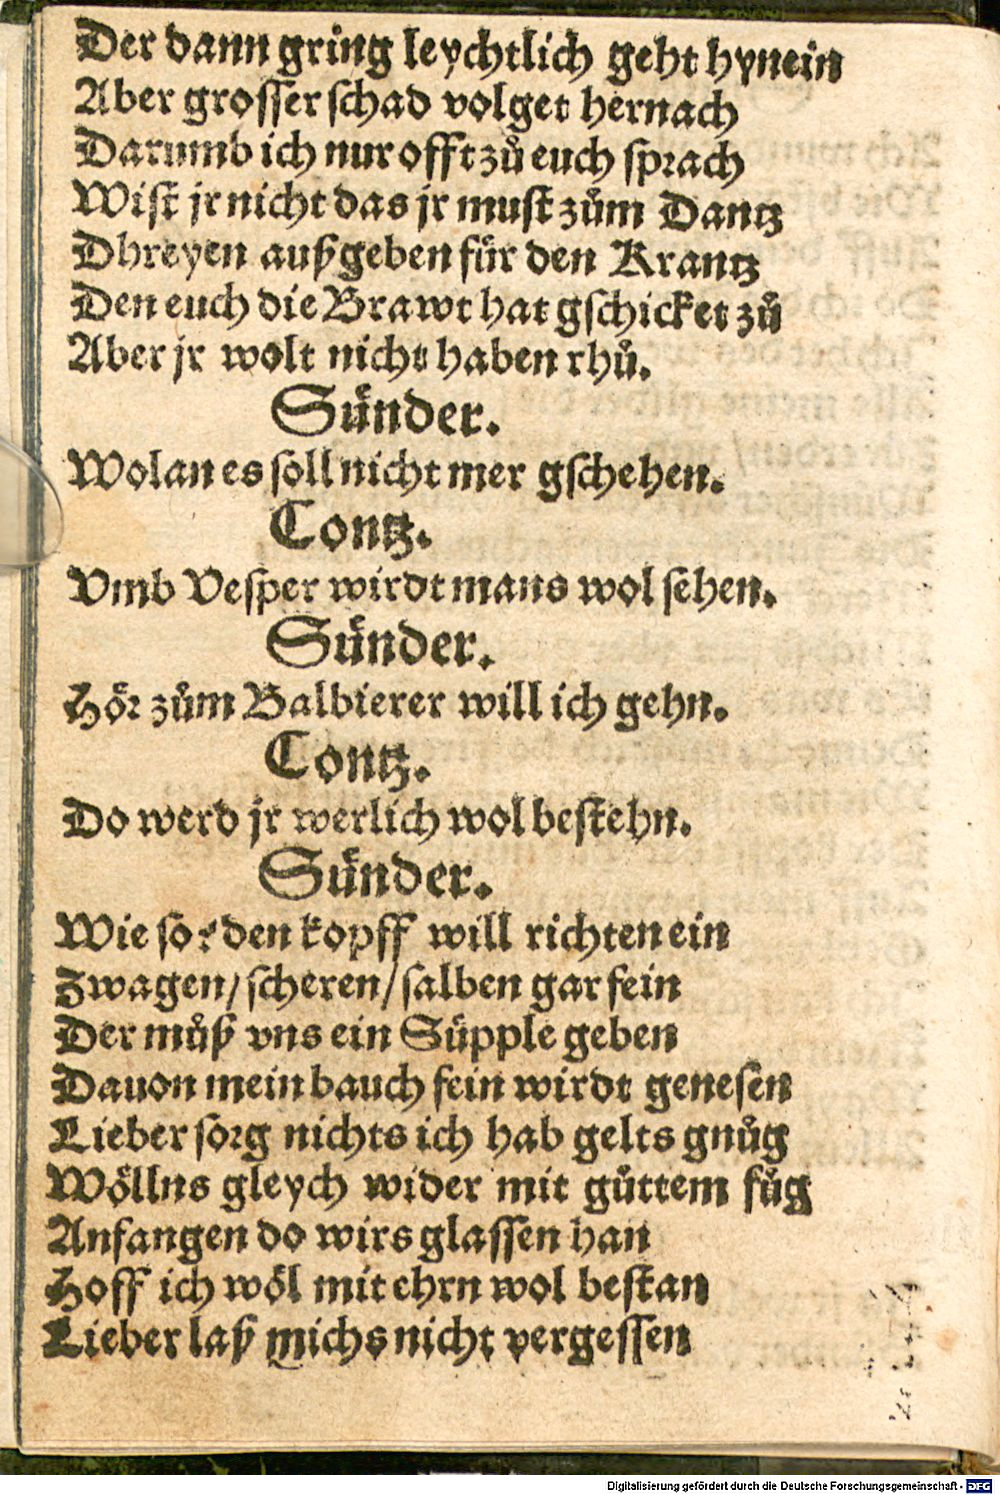 Der dann gring leychtlich geht hynein
Aber grosser schad volget hernach
Darumb ich nur offt zů euch sprach
Wist jr nicht das jr must zům Dantz
Dhreyen außgeben für den Krantz
Den euch die Brawt hat gschicket zů
Aber jr wolt nicht haben rhů.
Sünder.
Wolan es soll nicht mer gschehen.
Contz.
Vmb Vesper wirdt mans wol sehen.
Sünder.
Hör zům Balbierer will ich gehn.
Contz.
Do werd jr werlich wol bestehn.
Sünder.
Wie so den kopff will richten ein
Zwagen/ scheren/ salben gar fein
Der můß vns ein Süpple geben
Dauon mein bauch fein wirdt genesen
Lieber sorg nichts ich hab gelts gnůg
Wöllns gleych wider mit gůttem fůg
Anfangen do wirs glassen han
Hoff ich wöl mit ehrn wol bestan
Lieber laß michs nicht vergessen
Digitalisierung gefördert durch die Deutsche Forschungsgemeinschaft - DFG